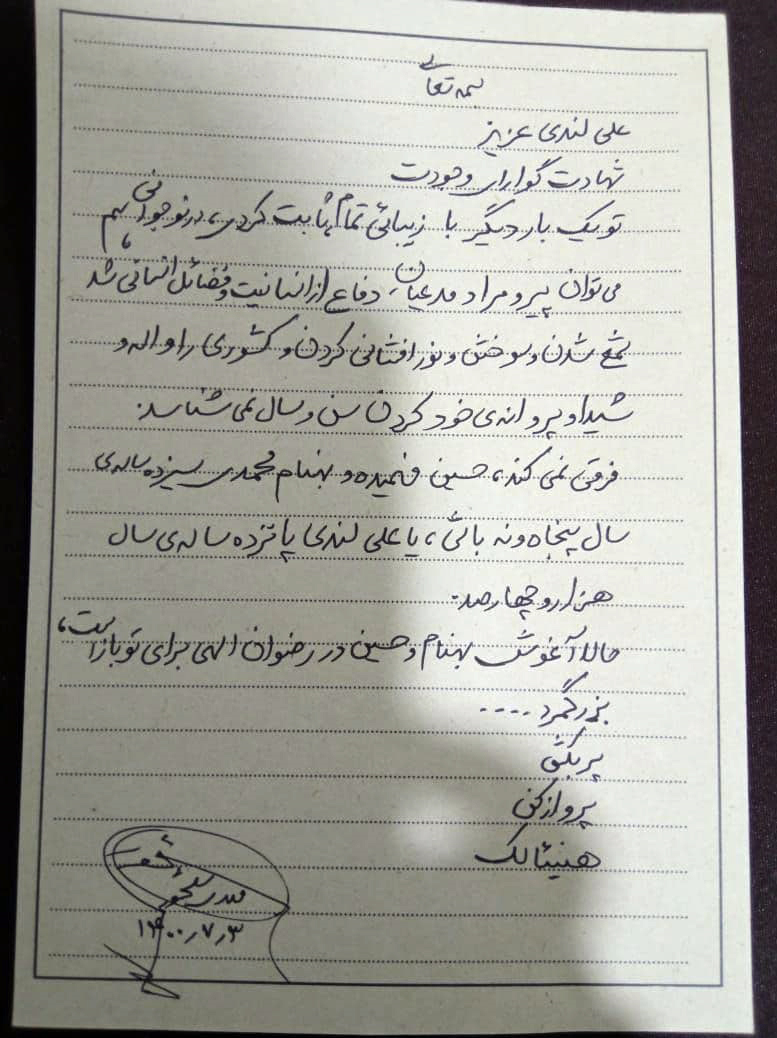 بسمه تعالی
علی لندی عزیز
شهادت گوارای وجودت
تو یک بار دیگر با زیبائی تمام ثابت کردی، در نوجوانی هم
می‌توان پیر و مراد مدعیان، دفاع از انسانیت و فضائل انسانی شد
شمع شدن و سوختن و نور افشانی کردن و کشوری را واله و
شیدا و پروانه‌ی خود کردن سن و سال نمی‌شناسد.
فرقی نمی کند، حسین فهمیده و بهنام محمدی سیزده ساله‌ی
سال پنجاه و نه باشی، یا علی لندی پانزده ساله‌ی سال
هزار و چهارصد.
حالا آغوش بهنام و حسین در رضوان الهی برای تو باز است،
بزرگمرد ....
پر بکش
پرواز کن
هنیئا لک
۱۴۰۰٫۷٫۳